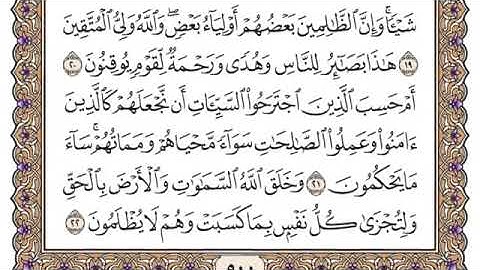 شَيْـًٔا ۚ وَإِنَّ ٱلظَّـٰلِمِينَ بَعْضُهُمْ أَوْلِيَآءُ بَعْضٍ ۖ وَٱللَّهُ وَلِىُّ ٱلْمُتَّقِينَ
١٩ هَـٰذَا بَصَـٰٓئِرُ لِلنَّاسِ وَهُدًى وَرَحْمَةٌ لِّقَوْمٍ يُوقِنُونَ ٢٠
أَمْ حَسِبَ ٱلَّذِينَ ٱجْتَرَحُوا۟ ٱلسَّيِّـَٔاتِ أَن نَّجْعَلَهُمْ كَٱلَّذِينَ
ءَامَنُوا۟ وَعَمِلُوا۟ ٱلصَّـٰلِحَـٰتِ سَوَآءً مَّحْيَاهُمْ وَمَمَاتُهُمْ ۚ سَآءَ
مَا يَحْكُمُونَ ٢١ وَخَلَقَ ٱللَّهُ ٱلسَّمَـٰوَٰتِ وَٱلْأَرْضَ بِٱلْحَقِّ
وَلِتُجْزَىٰ كُلُّ نَفْسٍۭ بِمَا كَسَبَتْ وَهُمْ لَا يُظْلَمُونَ ٢٢